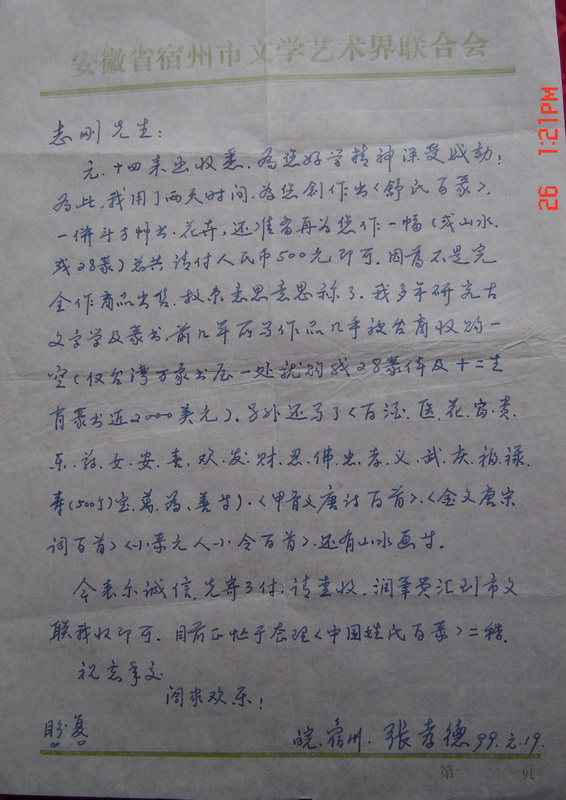 安徽省宿州市文学艺术界联合会
26 1:21PM
志刚先生：
元、十四来函收悉，为您好学精神深受感动！
为此，我用了两天时间，为您创作出《舒氏百篆》，
一併斗方草书、花卉，还准备再为您作一幅（或山水、
或28篆）总共请付人民币500元即可。因为不是完
全作商品出售，权系意思意思称了。我多年研究古
文字学及篆书，前几年所写作品几乎被台商收购一
空（仅台湾万家书店一处就购我28篆体及十二生
肖篆书近2000美元）。另外还写了《百酒、医、花、富、贵、
乐、龙、女、安、喜、欢、发、财、忍、佛、忠、孝、义、武、庆、福、禄、
寿(500个)宝、万、为、善等》、《甲骨文唐诗百首》、《金文唐宋
词百首》《小篆元人小令百首》，还有山水画等。
今表示诚信，先寄3付，请查收，润笔费汇到市文
联我收即可。目前正忙于整理《中国姓氏百篆》二稿。
祝忘年交
阖家欢乐！
盼复
皖、宿州、张孝德 99.元.19.
第 页